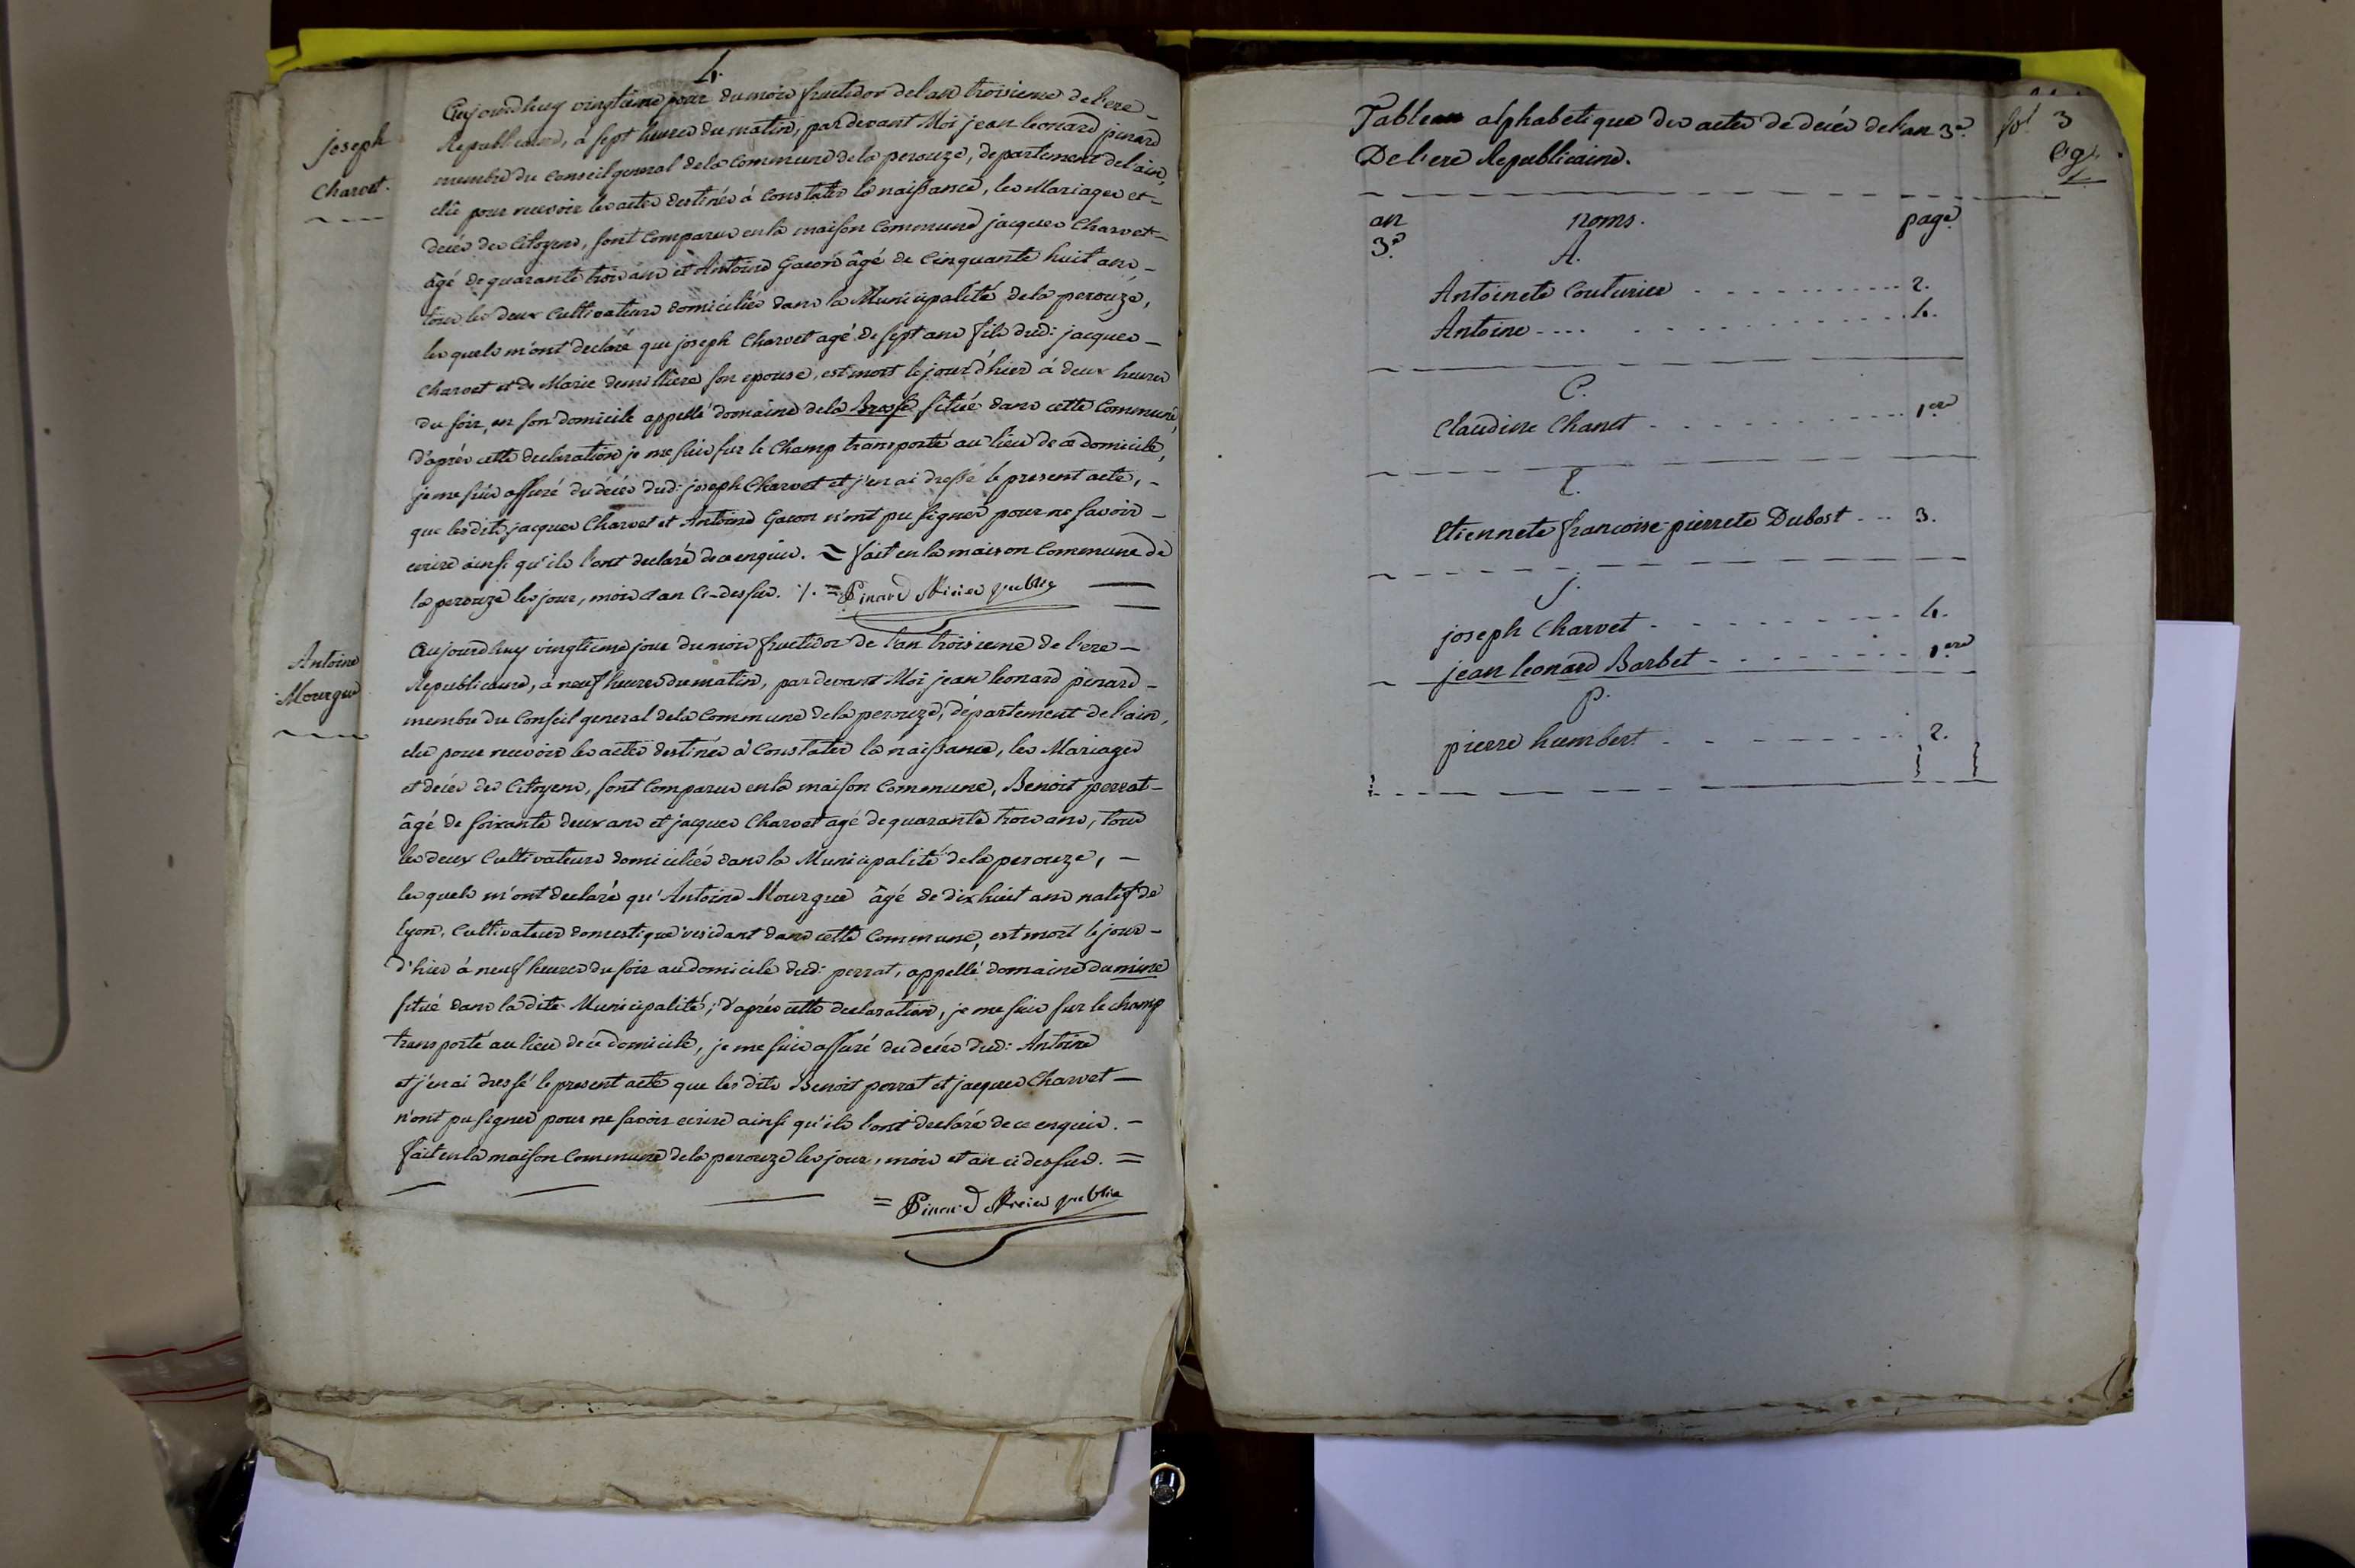 4.
joseph
Charvet.
Aujourdhuy vingtieme jour du mois fructidor de l'an troisieme de l'ere
Republicaine, à sept heures du matin, pardevant Moi jean leonard pinard
membre du Conseil general de la Commune de la perouze, departement de l'ain,
elû pour recevoir les actes destinés à Constater la naissance, les Mariages et
decès des Citoyens, sont Comparus en la maison Commune jacques Charvet
âgé de quarante trois ans et Antoine Gacon âgé de Cinquante huit ans
tous les deux Cultivateurs domiciliés dans la Municipalité de la perouze,
lesquels m'ont declaré que joseph Charvet agé de sept ans fils dud: jacques
Charvet et de Marie son epouse, est mort le jour d'hier à deux heures
du soir, en son domicile appellé domaine de la Brosse situé dans cette Commune,
d'après cette declaration je me suis sur le Champ transporté au lieu de ce domicile,
je me suis assuré du decès dud: joseph Charvet et j'en ai dressé le present acte,
que lesdits jacques Charvet et Antoine Gacon n'ont pu signer pour ne savoir
ecrire ainsi qu'ils l'ont declaré de ce enquis. = fait en la maison Commune de
la perouze les jour, mois et an Ci-dessus. ·/. = Pinard officier public
Antoine
Mourgue
Aujourdhuy vingtieme jour du mois fructidor de l'an troisieme de l'ere
Republicaine, à neuf heures du matin, pardevant Moi jean leonard pinard
membre du Conseil general de la Commune de la perouze, département de l'ain,
elu pour recevoir les actes destinés à Constater la naissance, les Mariages
et decès des Citoyens, sont Comparus en la maison Commune, Benoit perrat
âgé de soixante deux ans et jacques Charvet agé de quarante trois ans, tous
les deux Cultivateurs domiciliés dans la Municipalité de la perouze,
lesquels m'ont declaré qu'Antoine Mourgue âgé de dix huit ans natif de
lyon, Cultivateur domestique residant dans cette Commune, est mort le jour
d'hier à neuf heures du soir au domicile dud: perrat, appellé domaine du mine
situé dans la dite Municipalité; d'après cette declaration, je me suis sur le champ
transporté au lieu de ce domicile, je me suis assuré du decès dud: Antoine
et j'en ai dressé le present acte que les dits Benoit perrat et jacques Charvet
n'ont pu signer pour ne savoir ecrire ainsi qu'ils l'ont declaré de ce enquis.
fait en la maison Commune de la perouze les jour, mois et an ci dessus. =
= Pinard officier public
Tableau alphabetique des actes de decès de l'an 3e.
De l'ere Republicaine.
fol 3
an noms. page
3e. A.
Antoinete Couturier 2.
Antoine 4.
C.
Claudine Chanet 1ere
E.
Etiennete francoise pierrete Dubost 3.
J.
joseph Charvet 4.
jean leonard Barbet 1ere
p.
pierre humbert 2.